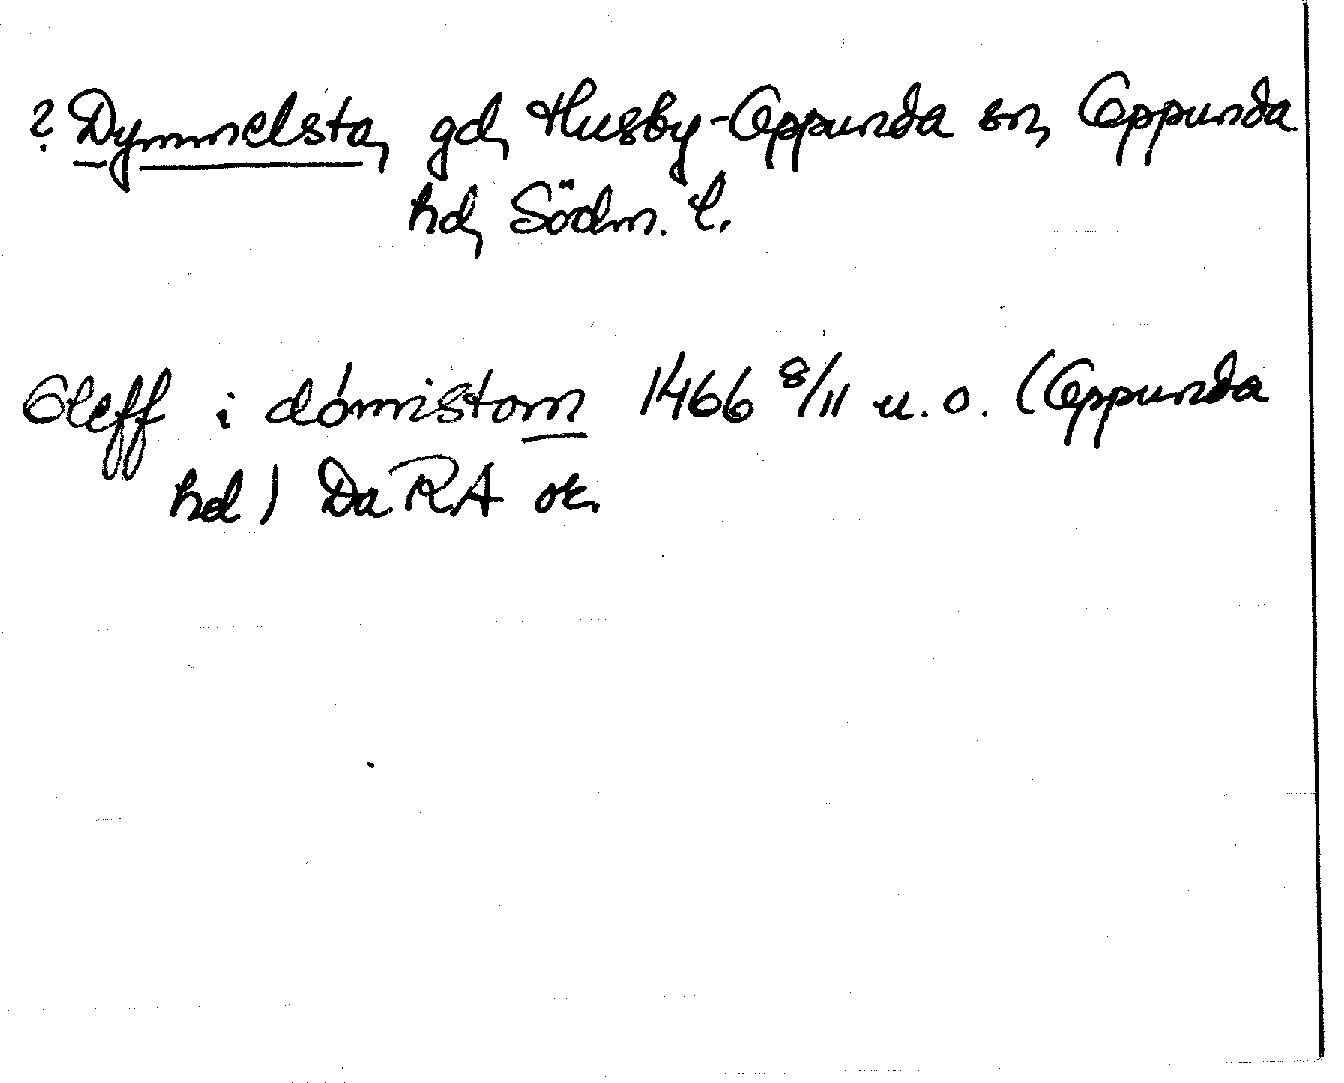 ? Dymmelsta, gd, Husby-Oppunda sn, Oppunda
hd, Södm. l.
Oleff i dómistom 1466 8/11 u.o. (Oppunda
hd) Da RA or.